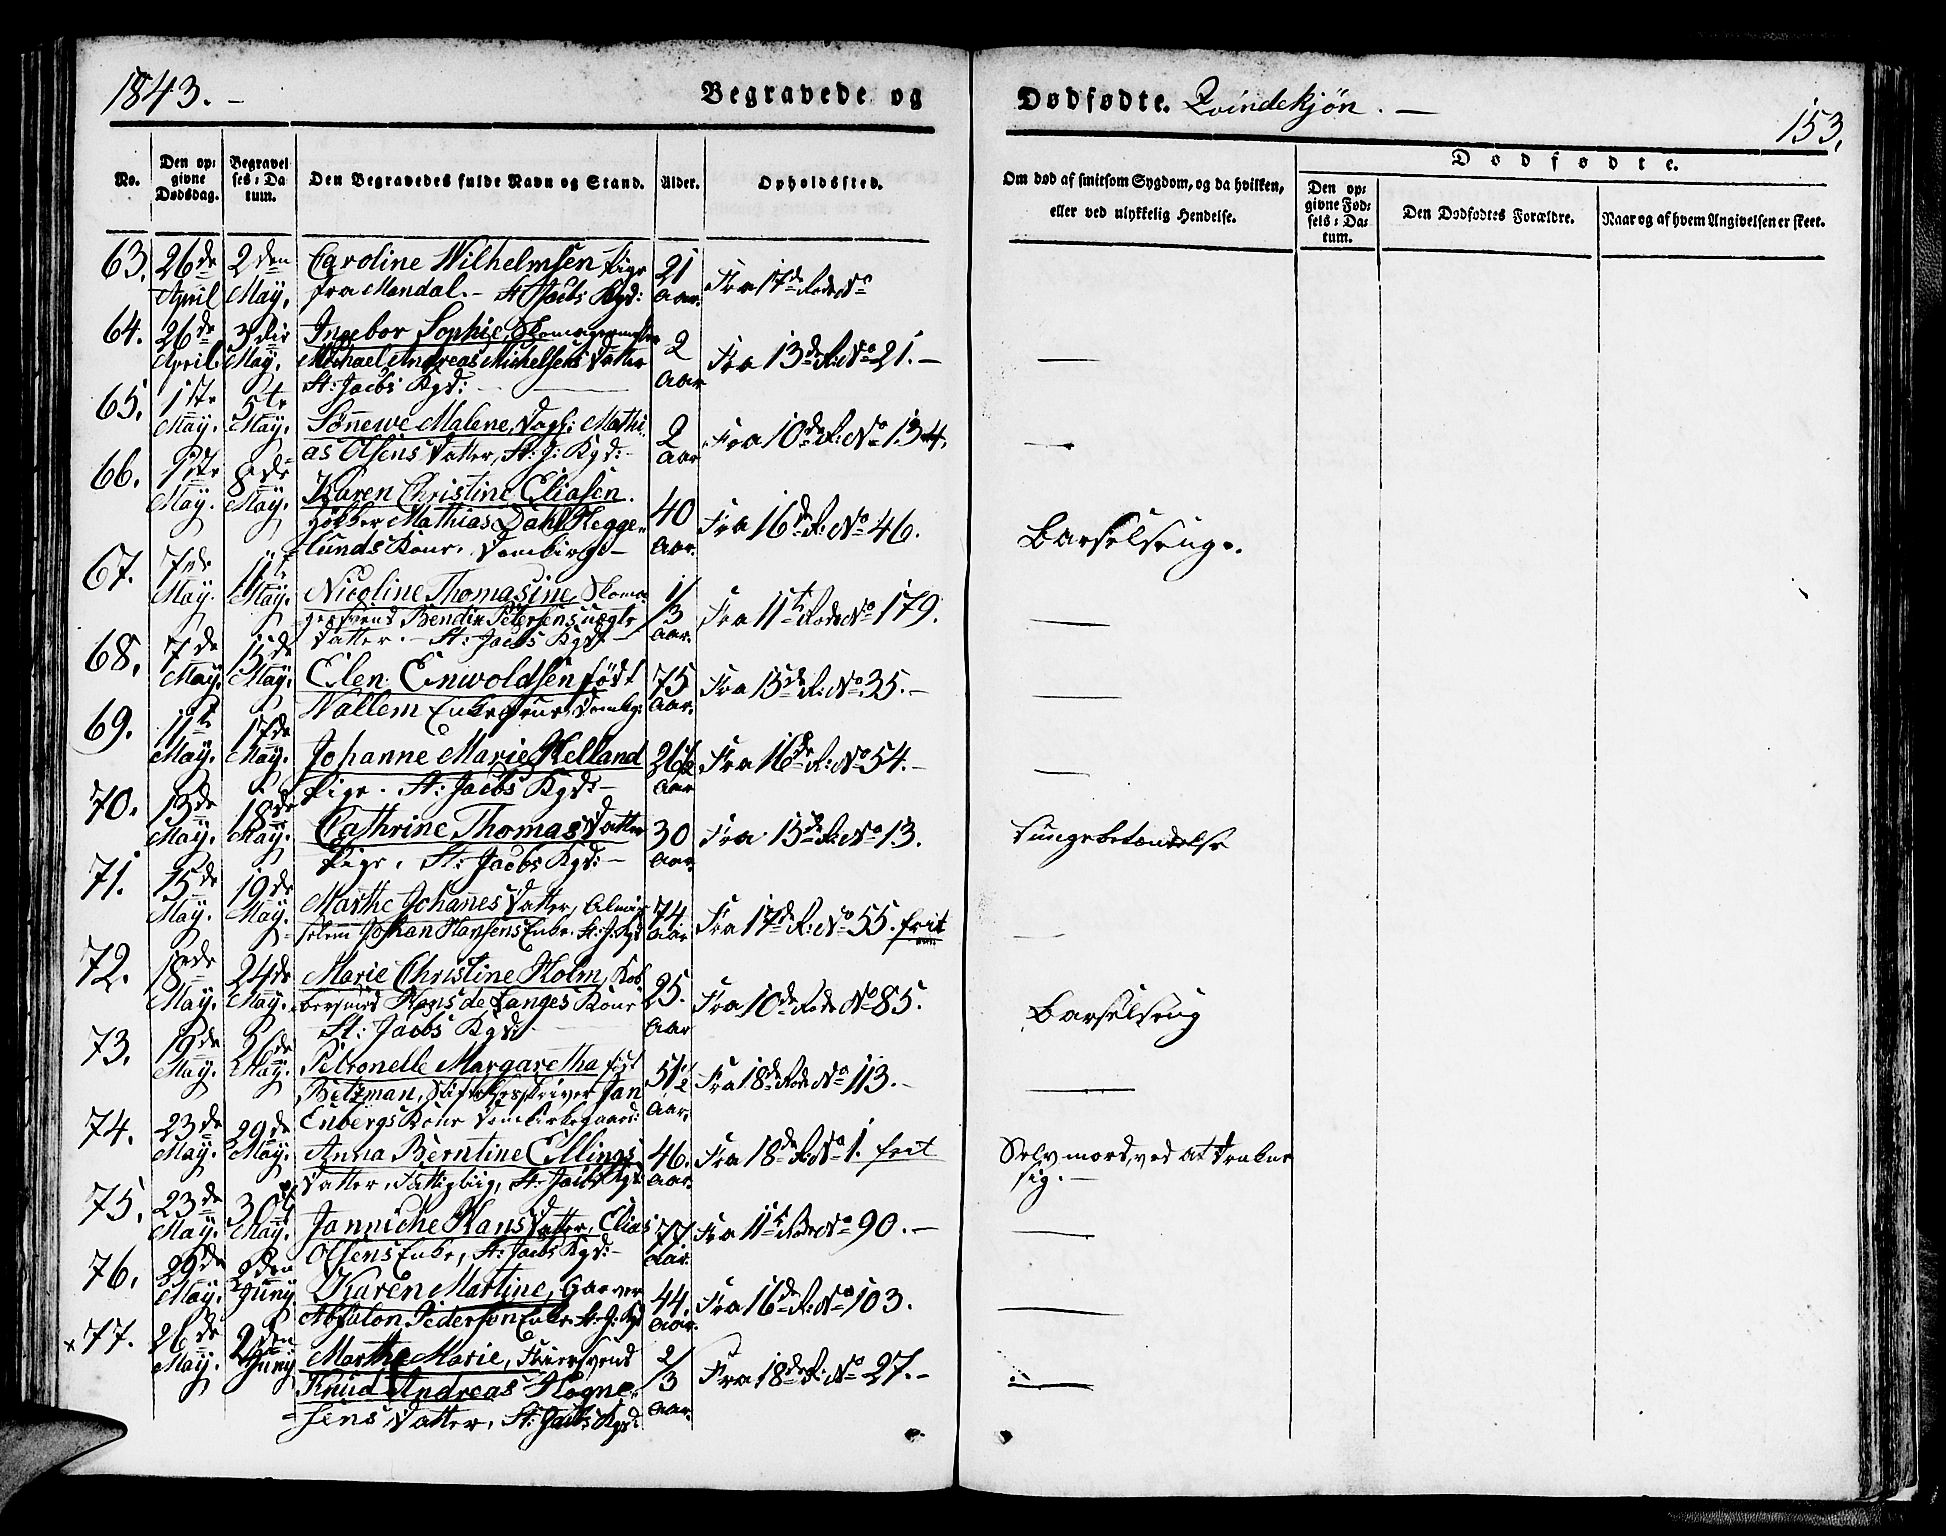 1843. –
Begravede og
Dødfødte. Qvindekjøn. –
153.
No.
Den opgivne Dødsdag.
Begravelses-Datum.
Den Begravedes fulde Navn og Stand.
Alder.
Opholdssted.
Om død af smitsom Sygdom, og da hvilken,
eller ved ulykkelig Hendelse.
Dødfødte.
Den opgivne Fødsels-Datum.
Den Dødfødtes Forældre.
Naar og af hvem Angivelsen er skeet.
63. 26de April 2den May. Caroline Wilhelmsen Pige
fra Mandal. – St. Jacobs Kgd: 21 Aar. Fra 17de Rode No
64. 26de April 3die May. Ingebor Sophie, Skomagermester
Michael Andreas Michelsens Datter
St: Jacobs Kgd: – 2 Aar Fra 13de R: No 21. –
65. 1ste May. 5te May. Sønnewe Malene, Dagl: Mathi-
as Olsens Datter, St: J: Kgd: – 2 Aar Fra 10de R: No 134.
66. 1ste May. 8de May. Karen Christine Eliasen.
Høkker Mathias Dahl Hegge-
lunds Kone. Domkirkg – 40 Aar. Fra 16de R: No 46. Barselseng.
67. 7de May. 11te May. Nicoline Thomasine, Skoma-
gersvend Bendix Petersens uægte
Datter. – St: Jacobs Kgd – 1/3 Aar. Fra 11te Rode No 179.
68. 7de May. 15de May. Elen Enwoldsen født
Wallem Enkefrue, Domkg: 75 Aar. Fra 15de R: No 35. –
69. 11te May. 17de May. Johanne Marie Helland
Pige. St: Jacobs Kgd: – 26½ Aar Fra 16de R: No 54. –
70. 13de May. 18de May. Cathrine Thomas Datter
Pige. St: Jacobs Kgd: – 30 Aar. Fra 15de R: No 13. Lungebetændelse
71. 15de May. 19de May. Marthe Johannes Datter, Almis-
selem Johan Hansens Enke. St: J: Kgd 74 Aar Fra 17de R: No 55. frit
72. 18de May. 24de May. Marie Christine Holm, Kob-
bersmed Hans de Langes Kone
St: Jacobs Kgd: 25. Aar Fra 10de Rode No 85. Barselseng
73. 19de May. 26de May. Petronelle Margaretha født
Beltzman, Stiftskriver Jan
Enbergs Kone Domkirkegaard: 51½ Aar. Fra 18de Rode No 113. –
74. 23de May. 29de May. Anna Berntine Ellings
Datter, Fattig Pige, St: Jacobs Kgd 46. Aar. Fra 18de R: No 1. frit Selvmord, ved at drukne
sig. –
75. 23de May. 30te May. Janniche Hans Datter, Elias
Olsens Enke, St: Jacobs Kgd: – 77 Aar. Fra 11te Rode No 90. –
76. 29de May. 2den Juny Karen Martine, Garver
Absalon Pedersen Enke St: J: Kgd 44. Aar. Fra 16de R: No 103.
× 77. 26de May. 2den Juny Marthe Marie, Tiuersvend
Knud Andreas Hogne-
sens Datter, St: Jacobs Kgd: 2/3 Aar. Fra 18de R: No 27. –